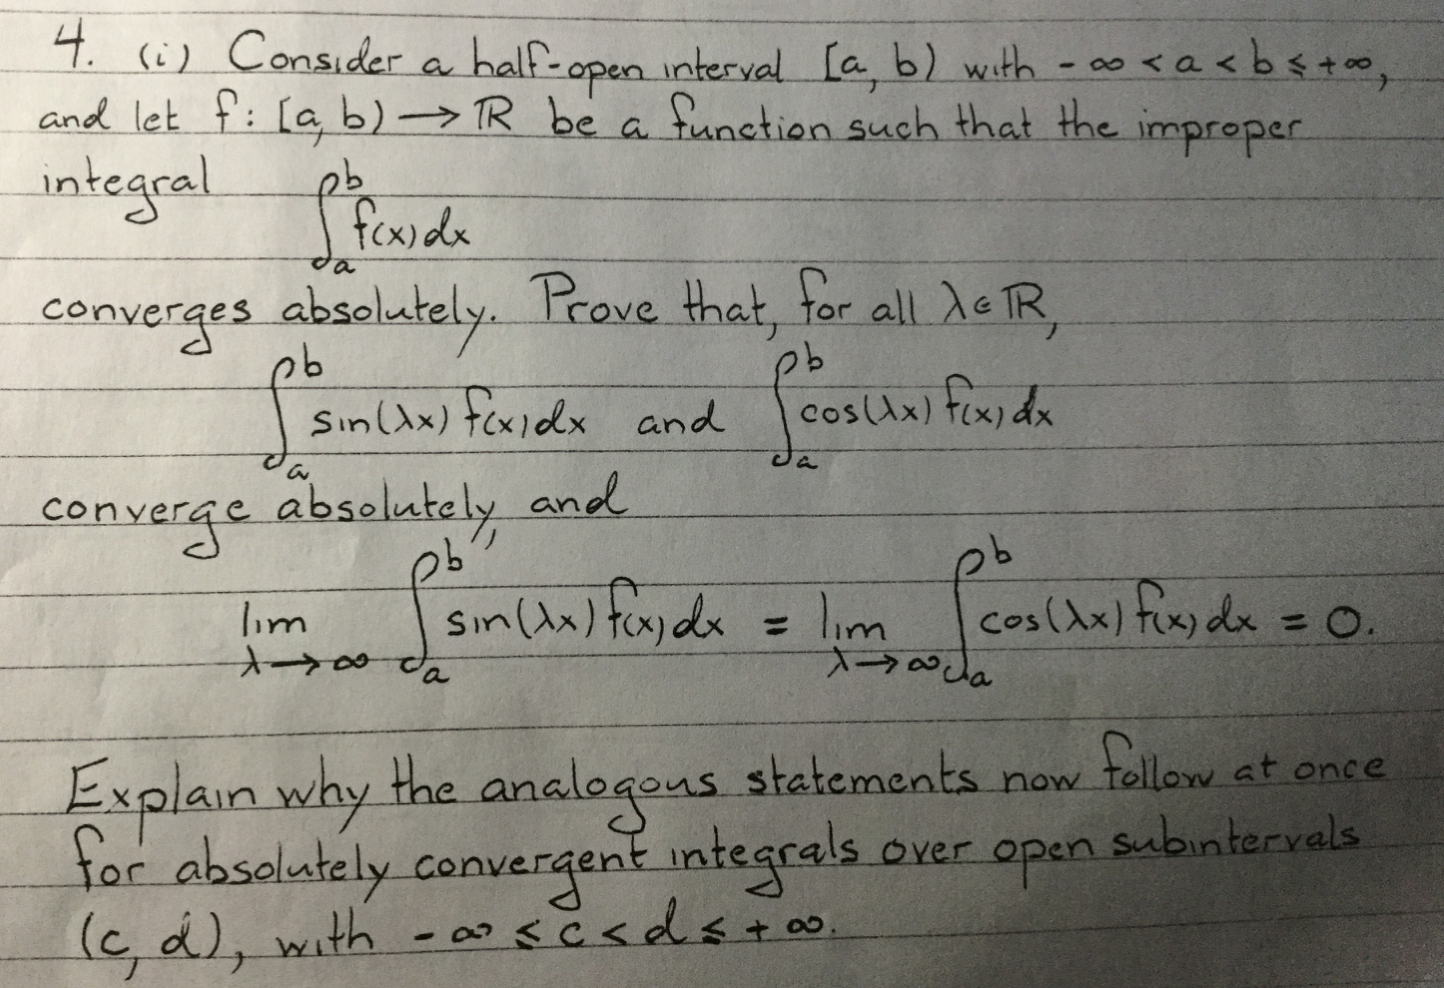 4. (i) Consider a half-open interval [a, b) with -∞ < a < b ≤ +∞,
and let f: [a, b) → ℝ be a function such that the improper
integral ∫_a^b f(x) dx
converges absolutely. Prove that, for all λ ∈ ℝ,
∫_a^b sin(λx) f(x) dx and ∫_a^b cos(λx) f(x) dx
converge absolutely, and
lim_{λ→∞} ∫_a^b sin(λx) f(x) dx = lim_{λ→∞} ∫_a^b cos(λx) f(x) dx = 0.
Explain why the analogous statements now follow at once
for absolutely convergent integrals over open subintervals
(c, d), with -∞ ≤ c < d ≤ +∞.